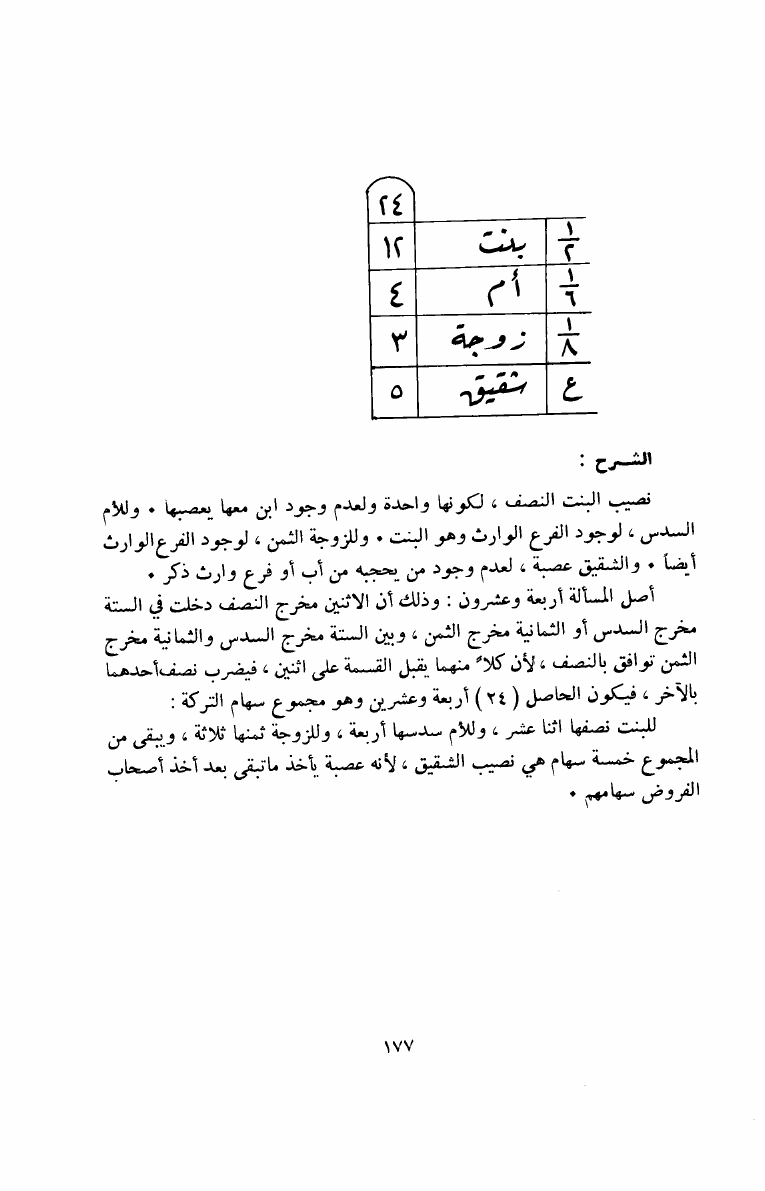 ٢٤
١/٢ بنت ١٢
١/٦ أم ٤
١/٨ زوجة ٣
ع شقيق ٥
الشرح :
نصيب البنت النصف ، لكونها واحدة ولعدم وجود ابن معها يعصبها . وللأم
السدس ، لوجود الفرع الوارث وهو البنت . وللزوجة الثمن ، لوجود الفرع الوارث
أيضاً . والشقيق عصبة ، لعدم وجود من يحجبه من أب أو فرع وارث ذكر .
أصل المسألة أربعة وعشرون : وذلك أن الاثنين مخرج النصف دخلت في الستة
مخرج السدس أو الثمانية مخرج الثمن ، وبين الستة مخرج السدس والثمانية مخرج
الثمن توافق بالنصف ، لأن كلاً منهما يقبل القسمة على اثنين ، فيضرب نصف أحدهما
بالآخر ، فيكون الحاصل ( ٢٤ ) أربعة وعشرين وهو مجموع سهام التركة :
للبنت نصفها اثنا عشر ، وللأم سدسها أربعة ، وللزوجة ثمنها ثلاثة ، ويبقى من
المجموع خمسة سهام هي نصيب الشقيق ، لأنه عصبة يأخذ ماتبقى بعد أخذ أصحاب
الفروض سهامهم .
١٧٧